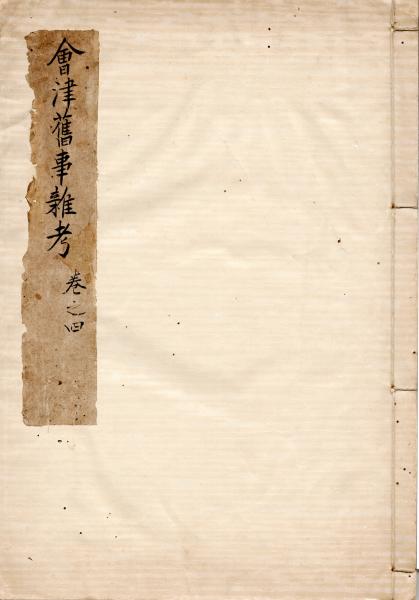 會津舊事雜考 卷之四